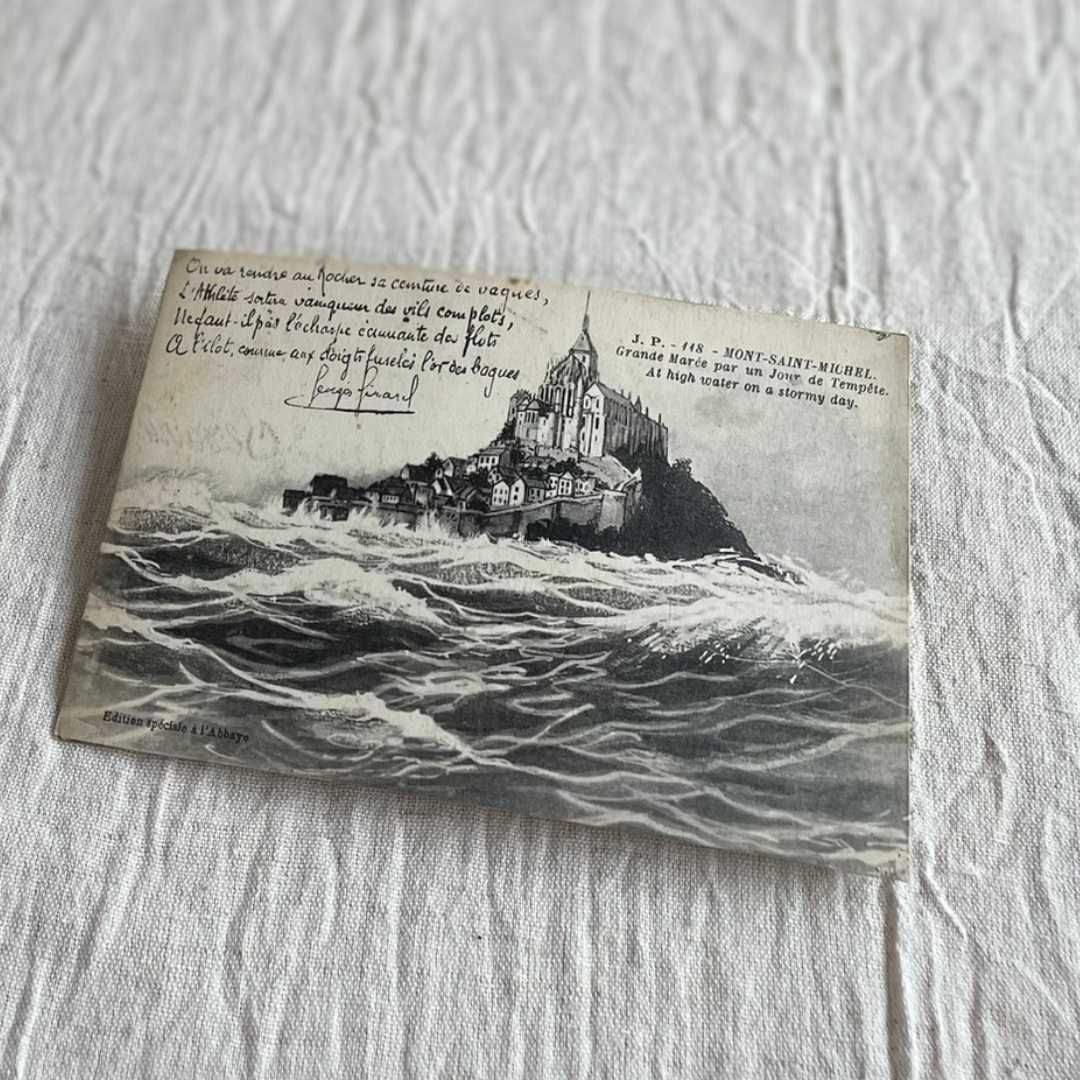 On va rendre au Rocher sa ceinture de vagues,
L'Athlète sortira vainqueur des vils complots,
Ne faut-il pas l'écharpe écumante des flots
A l'ilot, comme aux doigts fuselés l'or des bagues
Georges
J. P. - 118 - MONT-SAINT-MICHEL.
Grande Marée par un Jour de Tempête.
At high water on a stormy day.
Edition spéciale à l'Abbaye